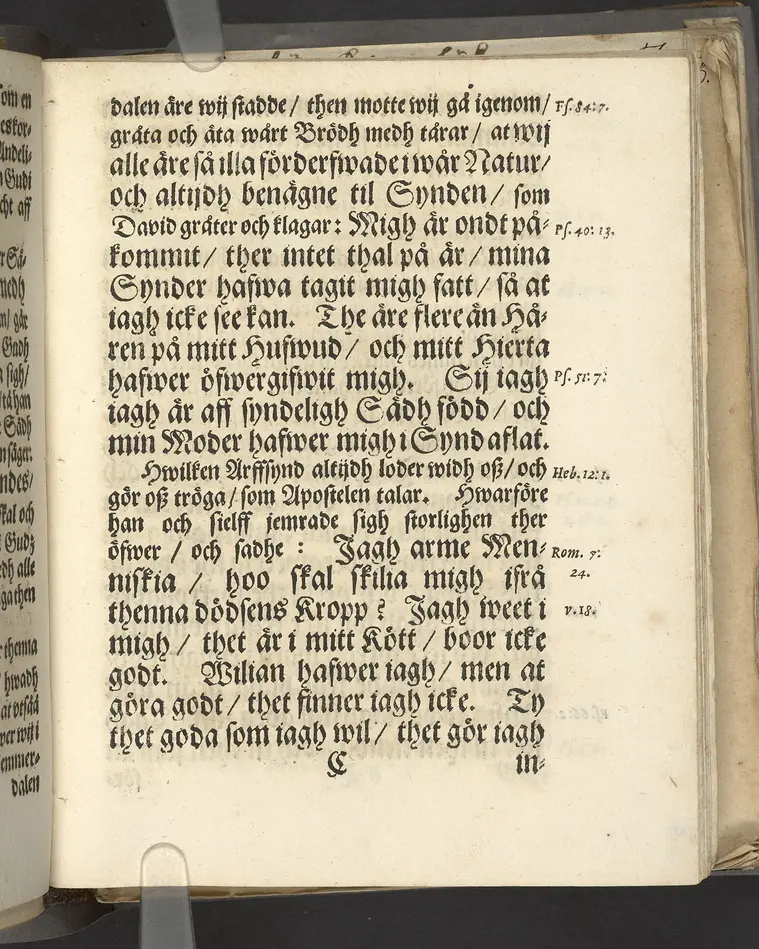 dalen äre wij stadde / then motte wij gå igenom / Ps. 84:7.
gråta och äta wårt Brödh medh tårar / at wij
alle äre så illa förderfwade i wår Natur /
och altijdh benägne til Synden / som
David gråter och klagar: Migh är ondt på- Ps. 40: 13.
kommit / ther intet thal på är / mina
Synder hafwa tagit migh fatt / så at
iagh icke see kan. The äre flere än Hå-
ren på mitt Hufwud / och mitt Hierta
hafwer öfwergifwit migh. Sij iagh Ps. 51: 7.
iagh är aff syndeligh Sädh född / och
min Moder hafwer migh i Synd aflat.
Hwilken Arffsynd altijdh loder widh oß / och Heb. 12: 1.
gör oß tröga / som Apostelen talar. Hwarföre
han och sielff jemrade sigh storlighen ther
öfwer / och sadhe : Jagh arme Men- Rom. 7:
niskia / hoo skal skilia migh ifrå 24.
thenna dödsens Kropp? Jagh weet i v. 18.
migh / thet är i mitt Kött / boor icke
godt. Wilian hafwer iagh / men at
göra godt / thet finner iagh icke. Ty
thet goda som iagh wil / thet gör iagh
C in-